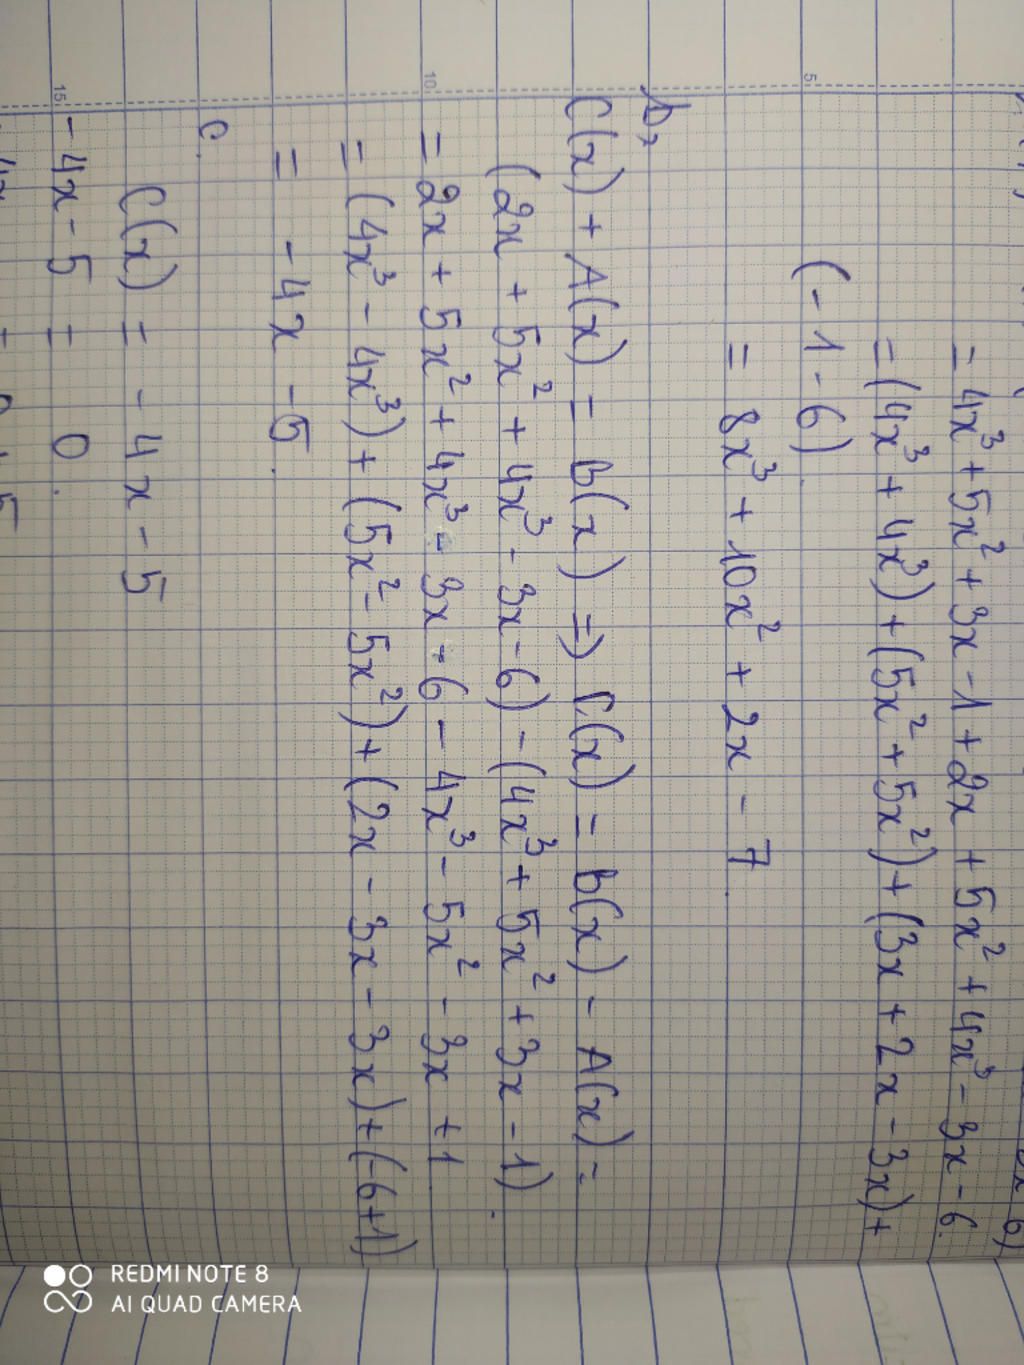 = 4x³ + 5x² + 3x - 1 + 2x + 5x² + 4x³ - 3x - 6.
= (4x³ + 4x³) + (5x² + 5x²) + (3x + 2x - 3x) +
(- 1 - 6)
= 8x³ + 10x² + 2x - 7.
b,
C(x) + A(x) = B(x) => C(x) = B(x) - A(x) =
(2x + 5x² + 4x³ - 3x - 6) - (4x³ + 5x² + 3x - 1)
= 2x + 5x² + 4x³ - 3x - 6 - 4x³ - 5x² - 3x + 1
= (4x³ - 4x³) + (5x² - 5x²) + (2x - 3x - 3x) + (-6+1)
= -4x - 5.
c.
C(x) = -4x - 5
-4x - 5 = 0.
5
10
15
REDMI NOTE 8
AI QUAD CAMERA